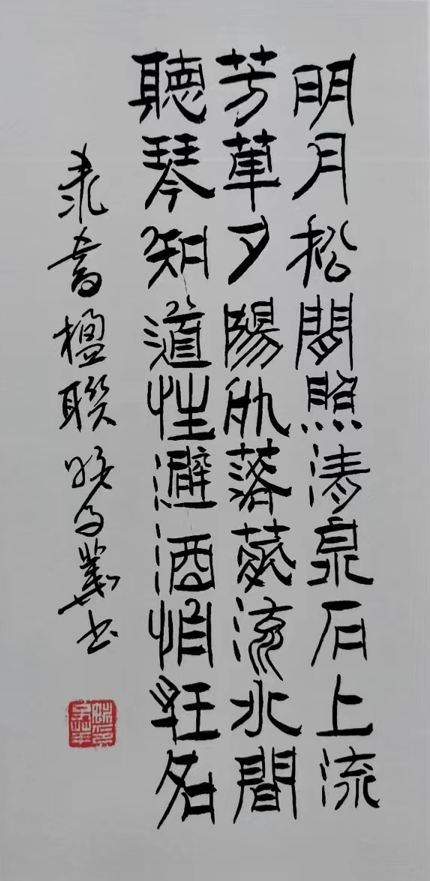 明月松間照清泉石上流
芳草夕陽外落花流水間
聽琴知道性避酒怕狂名
書楹聯 书